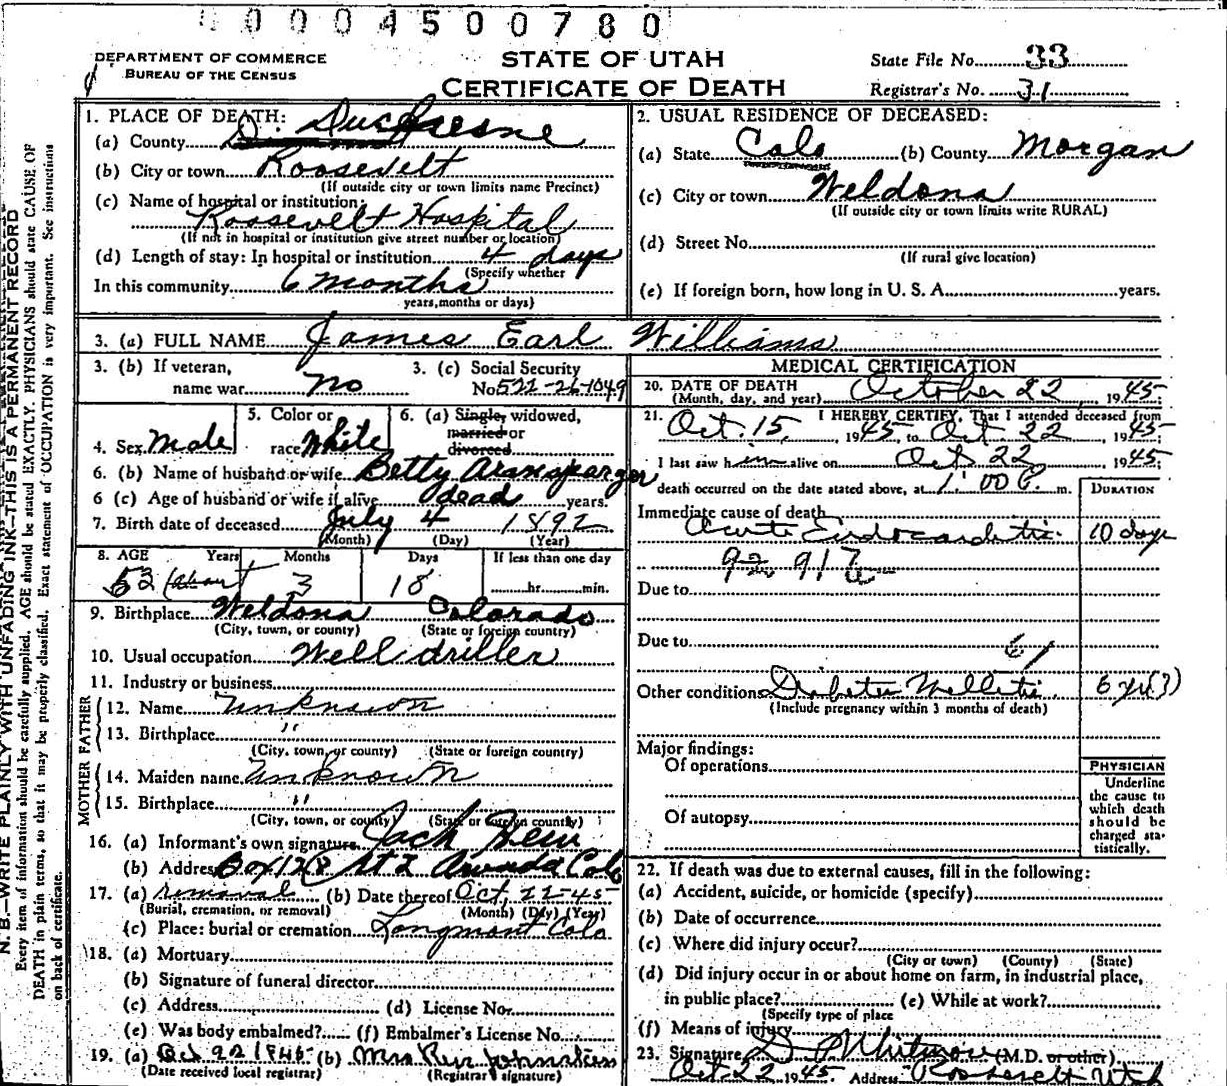 0004500780
DEPARTMENT OF COMMERCE
BUREAU OF THE CENSUS
STATE OF UTAH
CERTIFICATE OF DEATH
State File No. 33
Registrar's No. 31
N. B.—WRITE PLAINLY WITH UNFADING INK—THIS IS A PERMANENT RECORD
Every item of information should be carefully supplied. AGE should be stated EXACTLY. PHYSICIANS should state CAUSE OF
DEATH in plain terms, so that it may be properly classified. Exact statement of OCCUPATION is very important. See instructions
on back of certificate.
1. PLACE OF DEATH:
(a) County Duchesne
(b) City or town Roosevelt
(If outside city or town limits name Precinct)
(c) Name of hospital or institution:
Roosevelt Hospital
(If not in hospital or institution give street number or location)
(d) Length of stay: In hospital or institution 4 days
(Specify whether
In this community 6 months
years, months or days)
2. USUAL RESIDENCE OF DECEASED:
(a) State Colo (b) County Morgan
(c) City or town Weldona
(If outside city or town limits write RURAL)
(d) Street No.
(If rural give location)
(e) If foreign born, how long in U. S. A. years.
3. (a) FULL NAME James Earl Williams
3. (b) If veteran,
name war no
3. (c) Social Security
No 522-26-1049
4. Sex Male
5. Color or
race White
6. (a) Single, widowed,
married or
divorced
6. (b) Name of husband or wife Betty
6 (c) Age of husband or wife if alive dead years.
7. Birth date of deceased July 4 1892
(Month) (Day) (Year)
8. AGE Years Months Days If less than one day
53 (about 3 18 hr. min.
9. Birthplace Weldona Colorado
(City, town, or county) (State or foreign country)
10. Usual occupation Well driller
11. Industry or business
FATHER
12. Name Unknown
13. Birthplace "
(City, town, or county) (State or foreign country)
MOTHER
14. Maiden name Unknown
15. Birthplace "
(City, town, or county) (State or foreign country)
16. (a) Informant's own signature Jack
(b) Address Box 128 Rt 2 Colo
17. (a) removal (b) Date thereof Oct, 22-45
(Burial, cremation, or removal) (Month) (Day) (Year)
(c) Place: burial or cremation Longmont Colo
18. (a) Mortuary
(b) Signature of funeral director
(c) Address (d) License No.
(e) Was body embalmed? (f) Embalmer's License No.
19. (a) Oct 22 1945 (b) Mrs
(Date received local registrar) (Registrar's signature)
MEDICAL CERTIFICATION
20. DATE OF DEATH
(Month, day, and year) October 22, 1945
21. I HEREBY CERTIFY, That I attended deceased from
Oct. 15, 1945, to Oct 22, 1945;
I last saw him alive on Oct 22 1945;
death occurred on the date stated above, at 1:00 P. m.
DURATION
Immediate cause of death
Acute Endocarditis 10 days
92 917
Due to
Due to
61
Other conditions Diabetes Mellitis 6 yr(?)
(Include pregnancy within 3 months of death)
Major findings:
Of operations
Of autopsy
PHYSICIAN
Underline
the cause to
which death
should be
charged sta-
tistically.
22. If death was due to external causes, fill in the following:
(a) Accident, suicide, or homicide (specify)
(b) Date of occurrence
(c) Where did injury occur?
(City or town) (County) (State)
(d) Did injury occur in or about home on farm, in industrial place,
in public place? (e) While at work?
(Specify type of place
(f) Means of injury
23. Signature Whitmore (M.D. or other)
Oct 22 1945 Address Roosevelt Utah